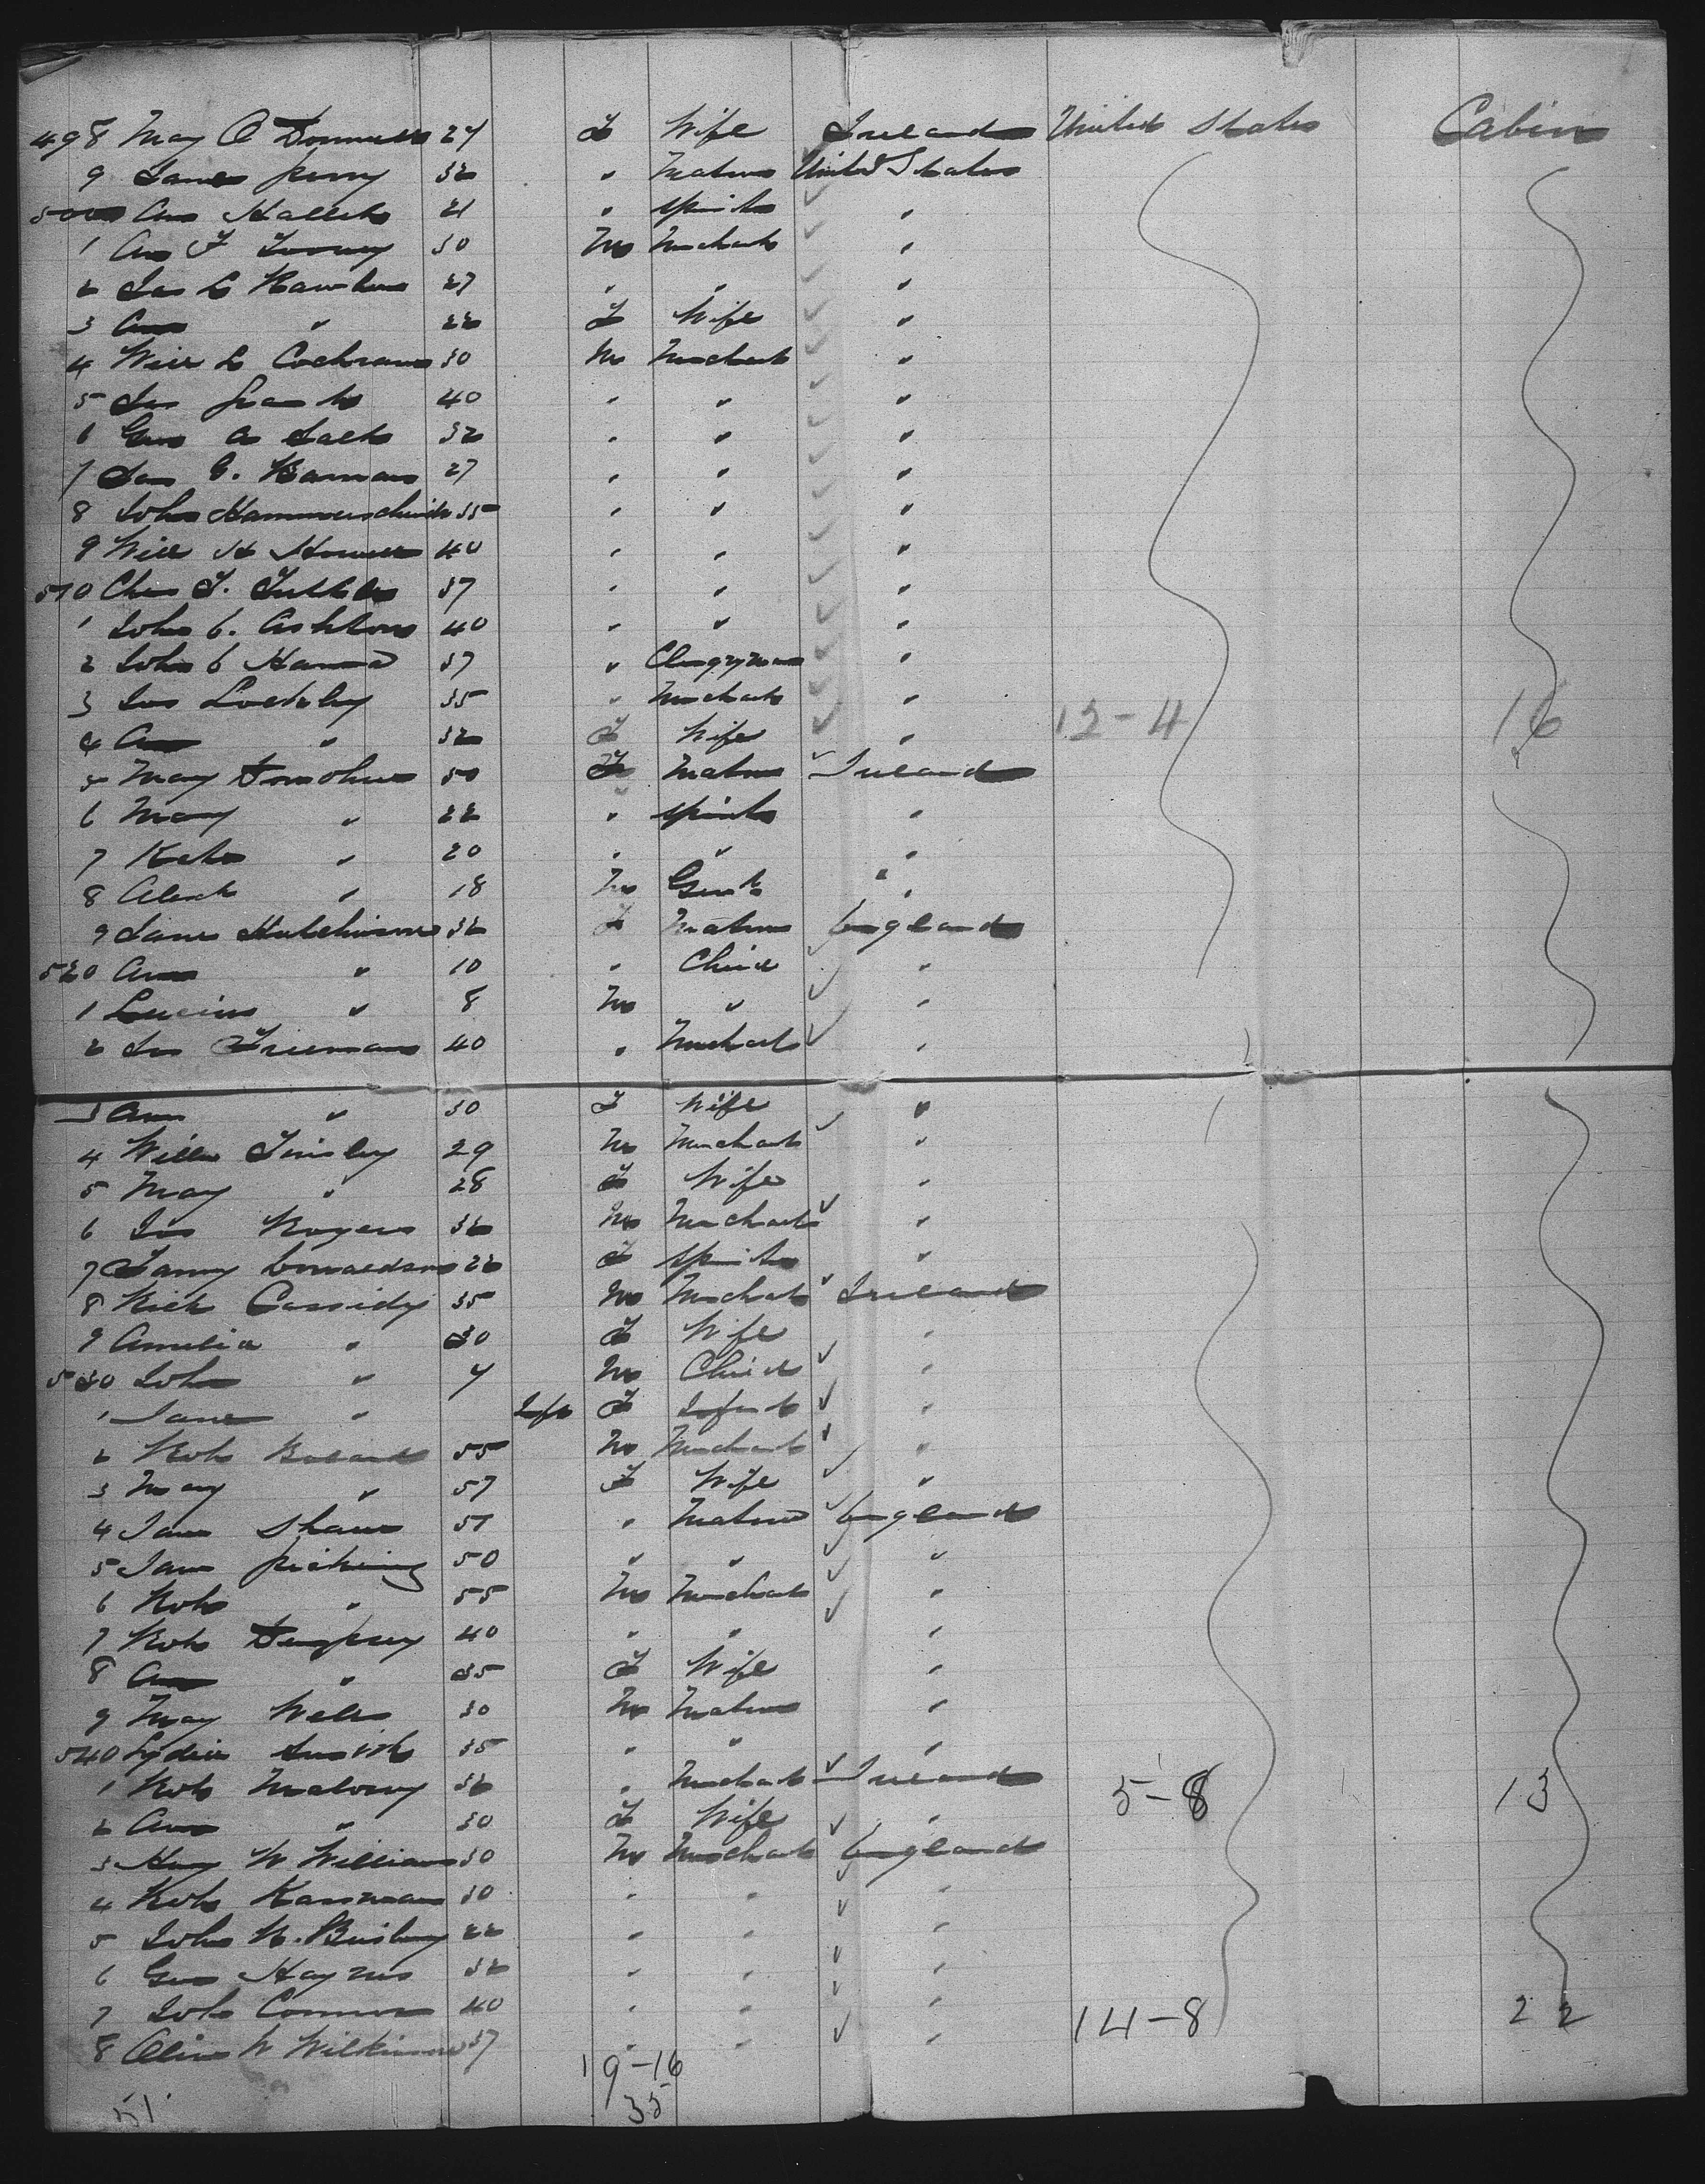 498 May O Donnell 27 F Wife Ireland United States Cabin
9 Jane Perry 32 " Matron United States
500 Ann Halleck 21 " Spinster "
1 30 M Merchant "
2 Jas C Rawlins 27 " " "
3 Ann " 22 F Wife "
4 Will L Cochrane 30 M Merchant "
5 Jas 40 " " "
6 Geo A 32 " " "
7 Jas G. 27 " " "
8 John Hammerschmidt 35 " " "
9 Will H 40 " " "
510 Chas T. 37 " " "
1 John C. Ashton 40 " " "
2 John C Hanna 37 " Clergyman "
3 Jos Lockley 35 " Merchant "
4 Ann " 32 F Wife " 12-4 16
5 May Donohue 50 F Matron Ireland
6 May " 22 " Spinster "
7 Kate " 20 " " "
8 " 18 M Gent "
9 Jane Hutchinson 32 F Matron England
520 Ann " 10 " Child "
1 Lucius " 8 M " "
2 Freeman 40 " Merchant "
3 Ann " 30 F Wife "
4 Will Tinsley 29 M Merchant "
5 May " 28 F Wife "
6 Jas Rogers 32 M Merchant "
7 Fanny Donaldson 22 F Spinster "
8 Rich Cassidy 35 M Merchant Ireland
9 Amelia " 30 F Wife "
530 John " 7 M Child "
1 Jane " Inft F Infant "
2 Rob 55 M Merchant "
3 May " 57 F Wife "
4 Jane Shaw 51 " Matron England
5 Jane Picking 50 " " "
6 Rob " 55 M Merchant "
7 Rob 40 " " "
8 Ann " 35 F Wife "
9 May Wells 30 M Matron "
540 Lydia Smith 35 " " "
1 Rob Malony 32 " Merchant Ireland 5-8 13
2 Ann " 30 F Wife "
3 Hy W Williams 30 M Merchant England
4 Rob 30 " " "
5 John W. 22 " " "
6 Geo Haynes 32 " " "
7 Joh Connor 40 " " " 14-8 22
8 W Wilkinson 37 " " "
19-16
51 35